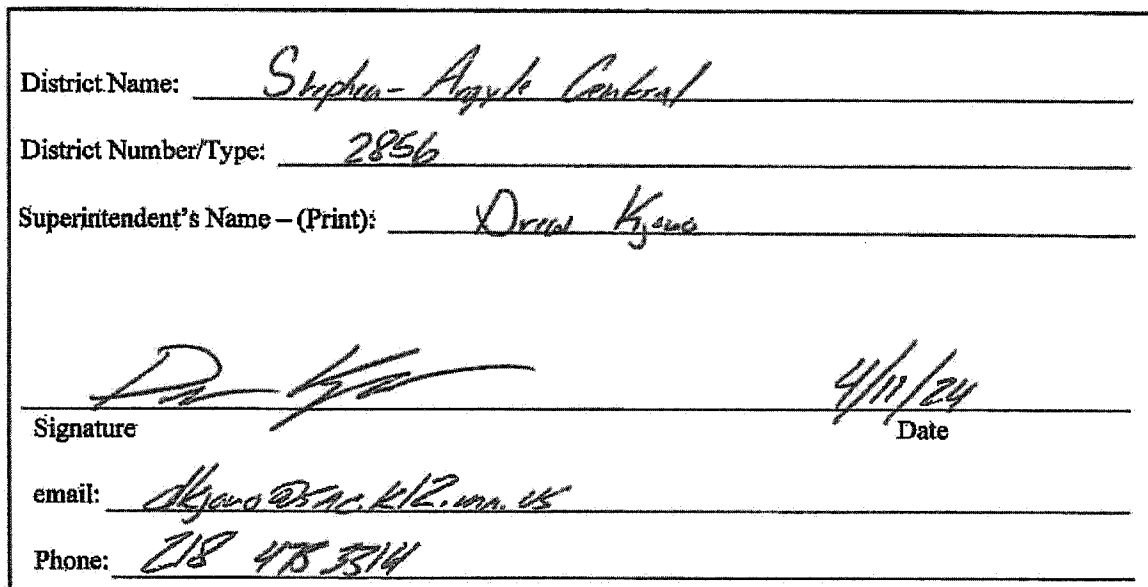 District Name: Stephen-Argyle Central
District Number/Type: 2856
Superintendent's Name – (Print): Drew Kjono
Signature Date 4/11/24
email: dkjono@sac.k12.mn.us
Phone: 218 478 3314